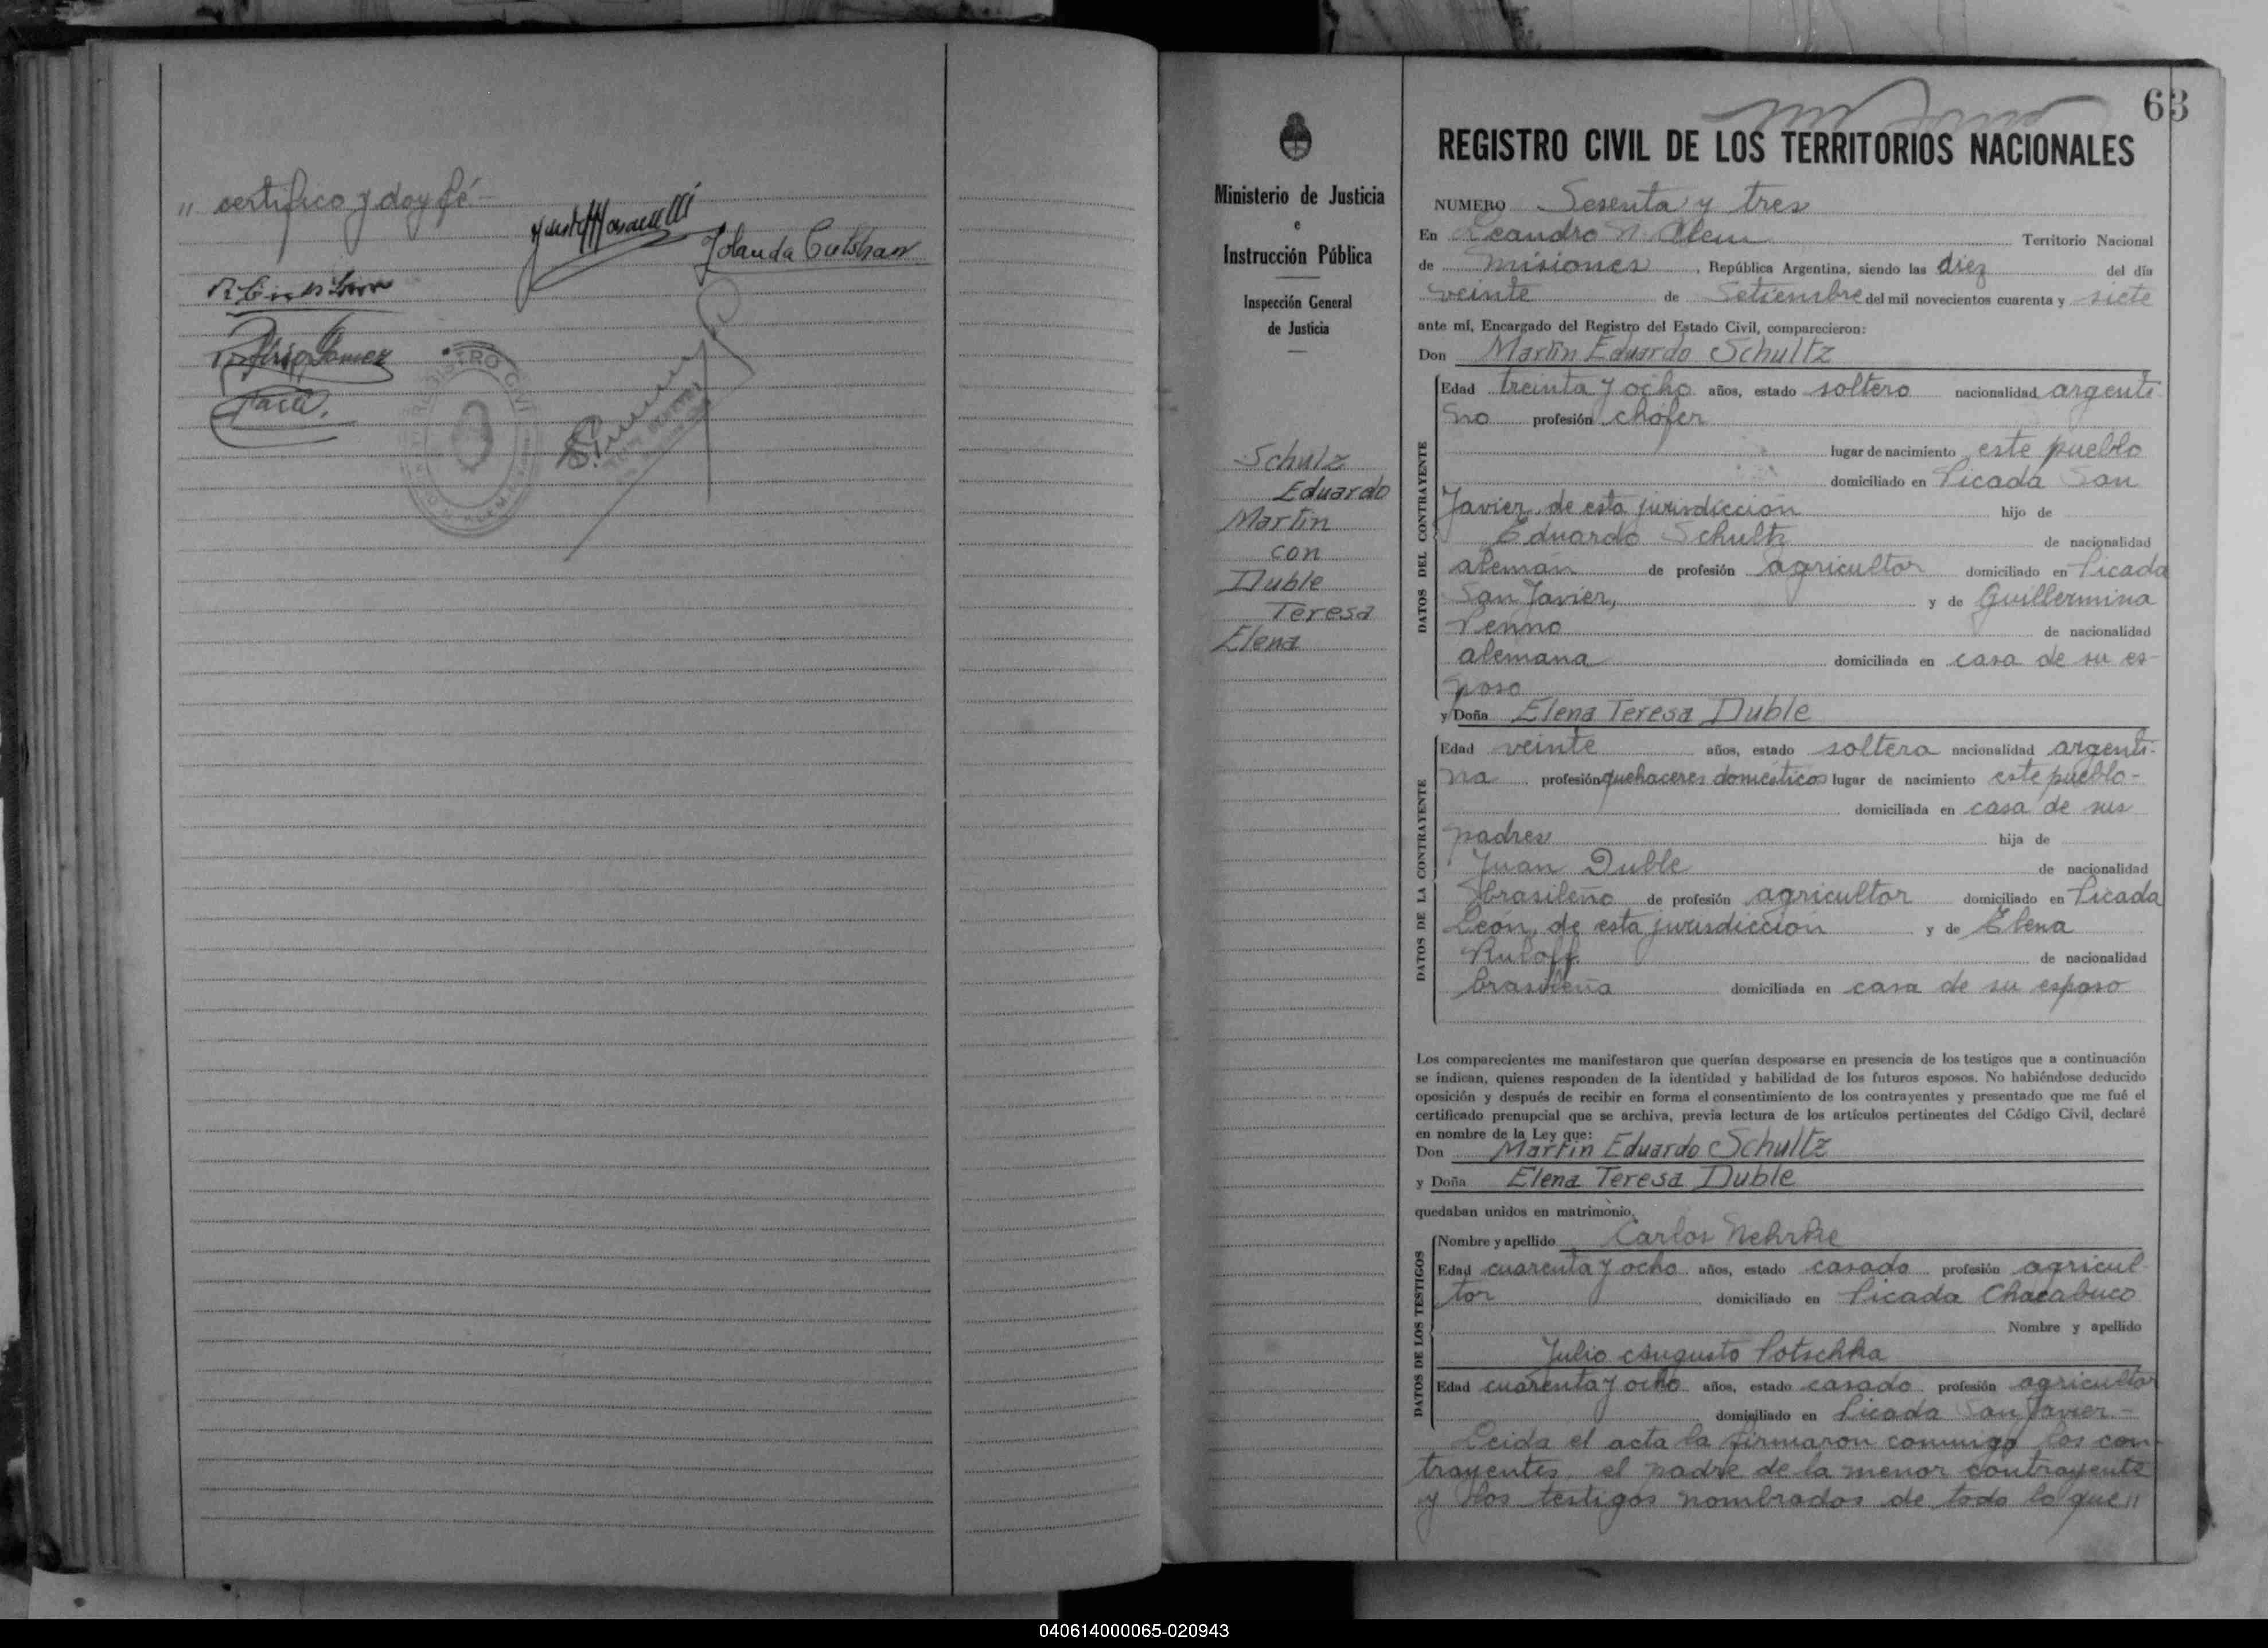 " certifico y doy fé-
Yolanda
Gomez
REGISTRO CIVIL
63
Ministerio de Justicia
e
Instrucción Pública
Inspección General
de Justicia
Schulz
Eduardo
Martín
con
Duble
Teresa
Elena
REGISTRO CIVIL DE LOS TERRITORIOS NACIONALES
NUMERO Sesenta y tres
En Leandro N. Alem Territorio Nacional
de Misiones, República Argentina, siendo las diez del día
veinte de Setiembre del mil novecientos cuarenta y siete
ante mí, Encargado del Registro del Estado Civil, comparecieron:
Don Martín Eduardo Schultz
DATOS DEL CONTRAYENTE
Edad treinta y ocho años, estado soltero nacionalidad argenti-
no profesión chofer
lugar de nacimiento este pueblo
domiciliado en Picada San
Javier, de esta jurisdicción hijo de
Eduardo Schultz de nacionalidad
alemán de profesión agricultor domiciliado en Picada
San Javier, y de Guillermina
Penno de nacionalidad
alemana domiciliada en casa de su es-
poso
y Doña Elena Teresa Duble
DATOS DE LA CONTRAYENTE
Edad veinte años, estado soltera nacionalidad argenti-
na profesión quehaceres domésticos lugar de nacimiento este pueblo-
domiciliada en casa de sus
padres hija de
Juan Duble de nacionalidad
brasileño de profesión agricultor domiciliado en Picada
León, de esta jurisdicción y de Elena
Ruloff de nacionalidad
brasileña domiciliada en casa de su esposo
Los comparecientes me manifestaron que querían desposarse en presencia de los testigos que a continuación
se indican, quienes responden de la identidad y habilidad de los futuros esposos. No habiéndose deducido
oposición y después de recibir en forma el consentimiento de los contrayentes y presentado que me fué el
certificado prenupcial que se archiva, previa lectura de los artículos pertinentes del Código Civil, declaré
en nombre de la Ley que:
Don Martín Eduardo Schultz
y Doña Elena Teresa Duble
quedaban unidos en matrimonio.
DATOS DE LOS TESTIGOS
Nombre y apellido Carlos Nehrke
Edad cuarenta y ocho años, estado casado profesión agricul-
tor domiciliado en Picada Chacabuco
Nombre y apellido
Julio Augusto Potschka
Edad cuarenta y ocho años, estado casado profesión agricultor
domiciliado en Picada San Javier.-
Leida el acta la firmaron conmigo los con-
trayentes, el padre de la menor contrayente
y los testigos nombrados de todo lo que "
040614000065-020943